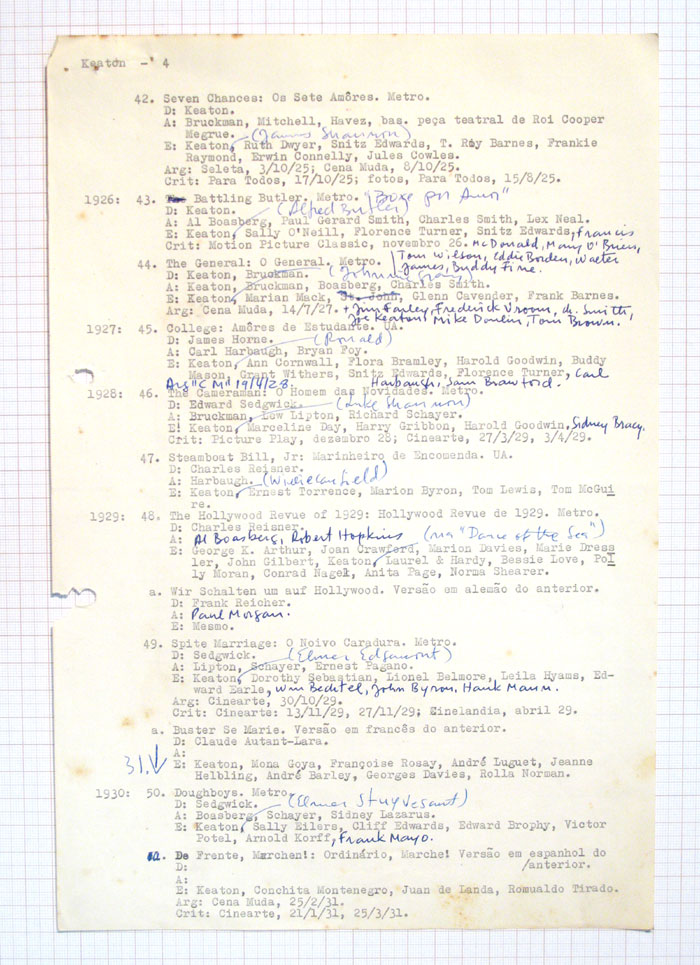 Keaton - 4
42. Seven Chances: Os Sete Amôres. Metro.
D: Keaton.
A: Bruckman, Mitchell, Havez, bas. peça teatral de Roi Cooper
Megrue. (James Shannon)
E: Keaton, Ruth Dwyer, Snitz Edwards, T. Roy Barnes, Frankie
Raymond, Erwin Connelly, Jules Cowles.
Arg: Seleta, 3/10/25; Cena Muda, 8/10/25.
Crit: Para Todos, 17/10/25; fotos, Para Todos, 15/8/25.
1926: 43. Battling Butler. Metro. "Boxe por Amor"
D: Keaton. (Alfred Butler)
A: Al Boasberg, Paul Gerard Smith, Charles Smith, Lex Neal.
E: Keaton, Sally O'Neill, Florence Turner, Snitz Edwards, Francis
Crit: Motion Picture Classic, novembro 26. McDonald, Mary O'Brien,
Tom Wilson, Eddie Borden, Walter
James, Buddy Fine.
44. The General: O General. Metro.
D: Keaton, Bruckman. (Johnnie Gray)
A: Keaton, Bruckman, Boasberg, Charles Smith.
E: Keaton, Marian Mack, St. John, Glenn Cavender, Frank Barnes.
Arg: Cena Muda, 14/7/27. + Jim Farley, Frederick Vroom, ch. Smith,
Joe Keaton, Mike Donlin, Tom Brown.
1927: 45. College: Amôres de Estudante. UA.
D: James Horne. (Ronald)
A: Carl Harbaugh, Bryan Foy.
E: Keaton, Ann Cornwall, Flora Bramley, Harold Goodwin, Buddy
Mason, Grant Withers, Snitz Edwards, Florence Turner, Carl
Harbaugh, Sam Crawford.
Arg "C M" 19/4/28.
1928: 46. The Cameraman: O Homem das Novidades. Metro.
D: Edward Sedgwick. (Luke Shannon)
A: Bruckman, Lew Lipton, Richard Schayer.
E: Keaton, Marceline Day, Harry Gribbon, Harold Goodwin. Sidney Bracy.
Crit: Picture Play, dezembro 28; Cinearte, 27/3/29, 3/4/29.
47. Steamboat Bill, Jr: Marinheiro de Encomenda. UA.
D: Charles Reisner.
A: Harbaugh. (Willie Canfield)
E: Keaton, Ernest Torrence, Marion Byron, Tom Lewis, Tom McGui
re.
1929: 48. The Hollywood Revue of 1929: Hollywood Revue de 1929. Metro.
D: Charles Reisner.
A: Al Boasberg, Robert Hopkins (na "Dance of the Sea")
E: George K. Arthur, Joan Crawford, Marion Davies, Marie Dress
ler, John Gilbert, Keaton, Laurel & Hardy, Bessie Love, Pol
ly Moran, Conrad Nagel, Anita Page, Norma Shearer.
a. Wir Schalten um auf Hollywood. Versão em alemão do anterior.
D: Frank Reicher.
A: Paul Morgan.
E: Mesmo.
49. Spite Marriage: O Noivo Caradura. Metro.
D: Sedgwick. (Elmer Edgemont)
A: Lipton, Schayer, Ernest Pagano.
E: Keaton, Dorothy Sebastian, Lionel Belmore, Leila Hyams, Ed-
ward Earle, Wm Bechtel, John Byron, Hank Mann.
Arg: Cinearte, 30/10/29.
Crit: Cinearte: 13/11/29, 27/11/29; Cinelandia, abril 29.
a. Buster Se Marie. Versão em francês do anterior.
D: Claude Autant-Lara.
A:
31. E: Keaton, Mona Goya, Françoise Rosay, André Luguet, Jeanne
Helbling, André Barley, Georges Davies, Rolla Norman.
1930: 50. Doughboys. Metro.
D: Sedgwick. (Elmer Stuyvesant)
A: Boasberg, Schayer, Sidney Lazarus.
E: Keaton, Sally Eilers, Cliff Edwards, Edward Brophy, Victor
Potel, Arnold Korff, Frank Mayo.
a. De Frente, Marchen!: Ordinário, Marche! Versão em espanhol do
D: /anterior.
A:
E: Keaton, Conchita Montenegro, Juan de Landa, Romualdo Tirado.
Arg: Cena Muda, 25/2/31.
Crit: Cinearte, 21/1/31, 25/3/31.